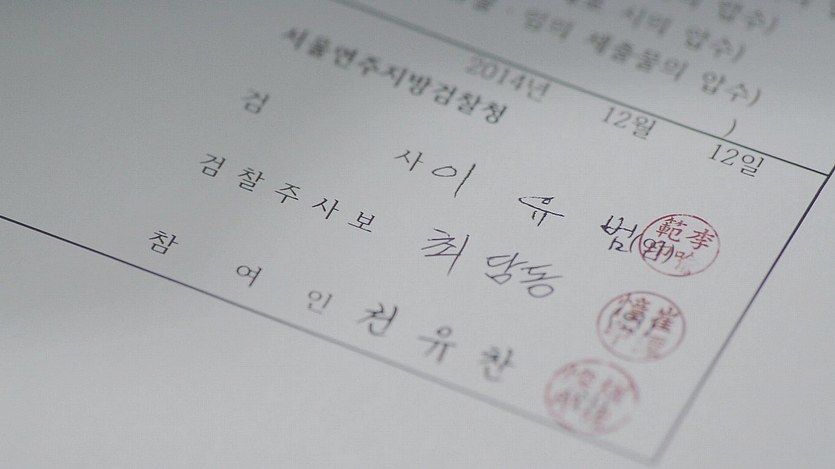 시의 압수)
임의 제출물의 압수)
)
2014년 12월 12일
서울연주지방검찰청
검 사 이 유 범(인)
검 찰 주 사 보 최 담 동
참 여 인 권 유 찬
李
範
崔